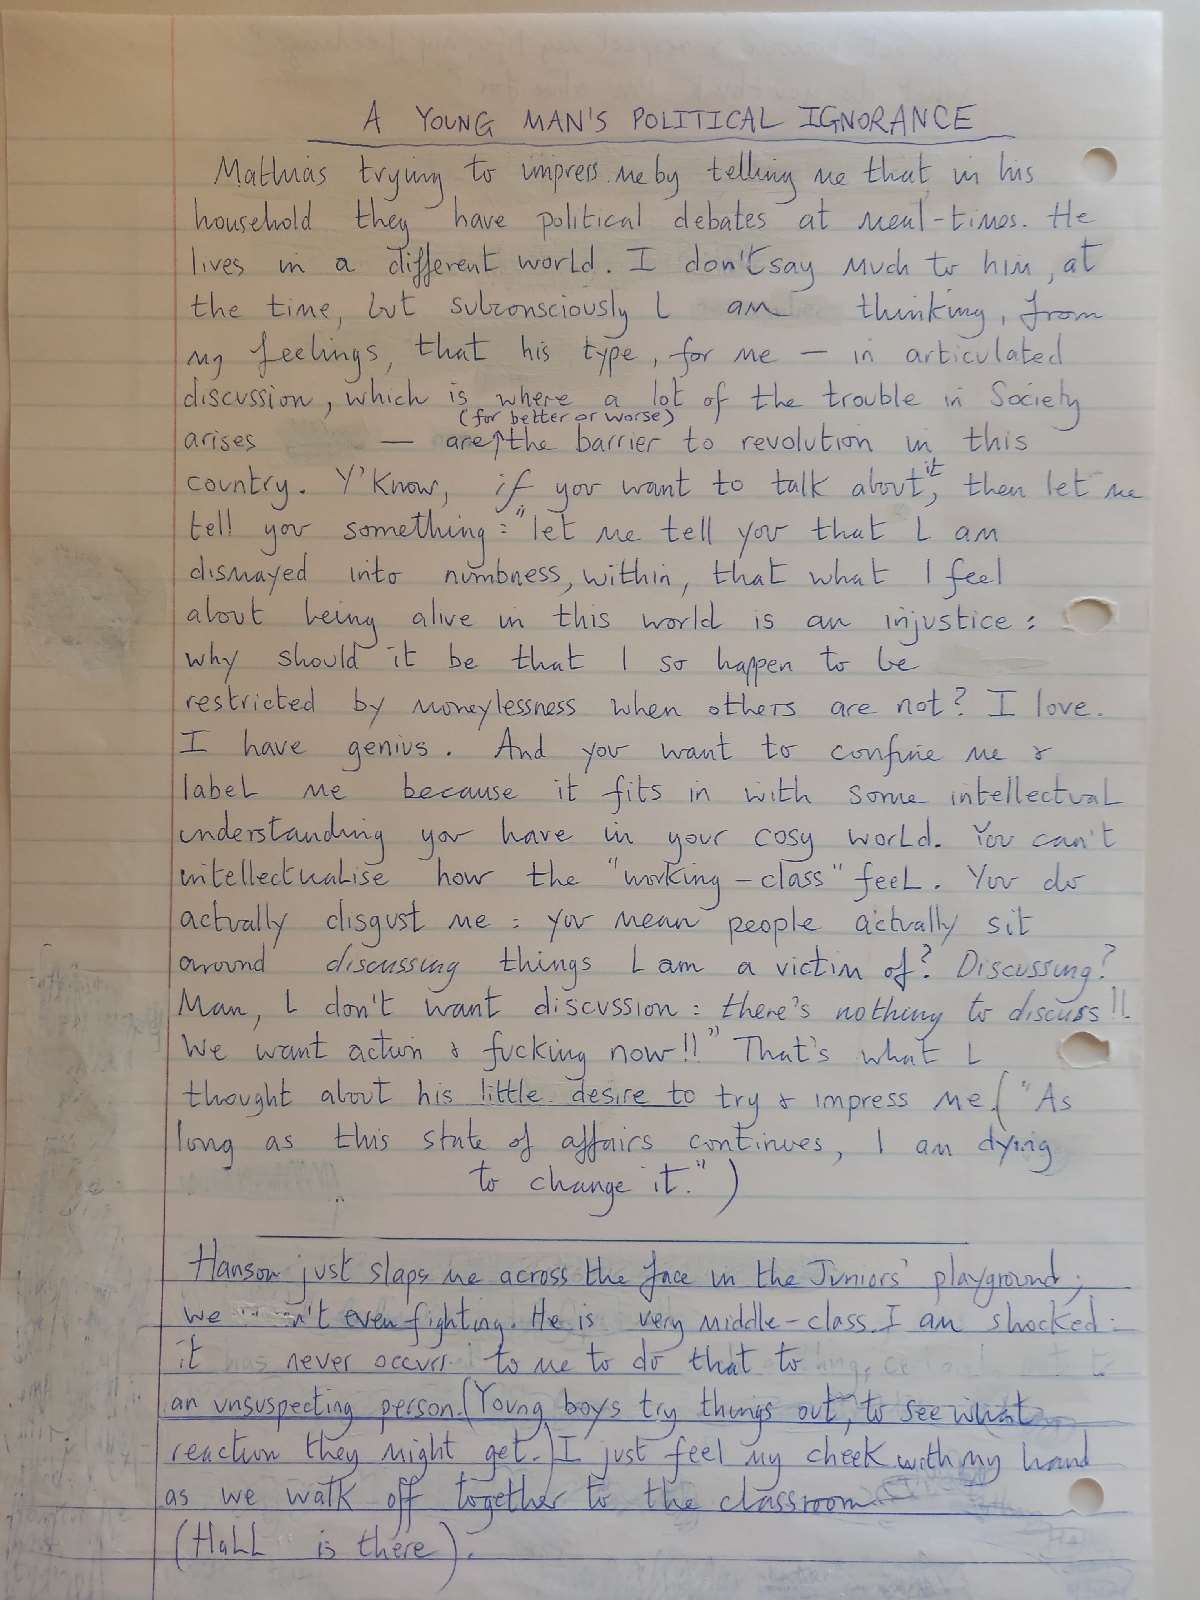 A YOUNG MAN'S POLITICAL IGNORANCE
Mathias trying to impress me by telling me that in his
household they have political debates at meal-times. He
lives in a different world. I don't say much to him, at
the time, but subconsciously I am thinking, from
my feelings, that his type, for me — in articulated
discussion, which is where a lot of the trouble in Society
(for better or worse)
arises — are↑the barrier to revolution in this
country. Y'Know, if you want to talk about it, then let me
tell you something: "let me tell you that I am
dismayed into numbness, within, that what I feel
about being alive in this world is an injustice:
why should it be that I so happen to be
restricted by moneylessness when others are not? I love.
I have genius. And you want to confine me &
label me because it fits in with some intellectual
understanding you have in your cosy world. You can't
intellectualise how the "working-class" feel. You do
actually disgust me: you mean people actually sit
around discussing things I am a victim of? Discussing?
Man, I don't want discussion: there's nothing to discuss!!
We want action & fucking now!!" That's what I
thought about his little desire to try & impress me. ("As
long as this state of affairs continues, I am dying
to change it.")
Hanson just slaps me across the face in the Juniors' playground;
we even fighting. He is very middle-class. I am shocked:
it has never occurr to me to do that to
an unsuspecting person. (Young boys try things out, to see what
reaction they might get.) I just feel my cheek with my hand
as we walk off together to the classroom
(Hall is there).